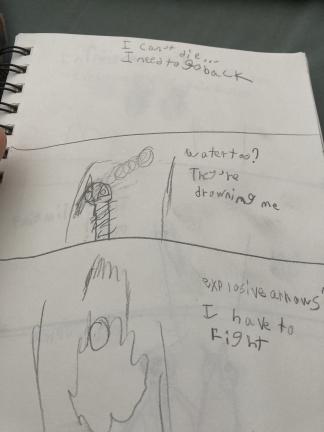 I can't die...
I need to go back
water too?
They're
drowning me
explosive arrows?
I have to
Fight